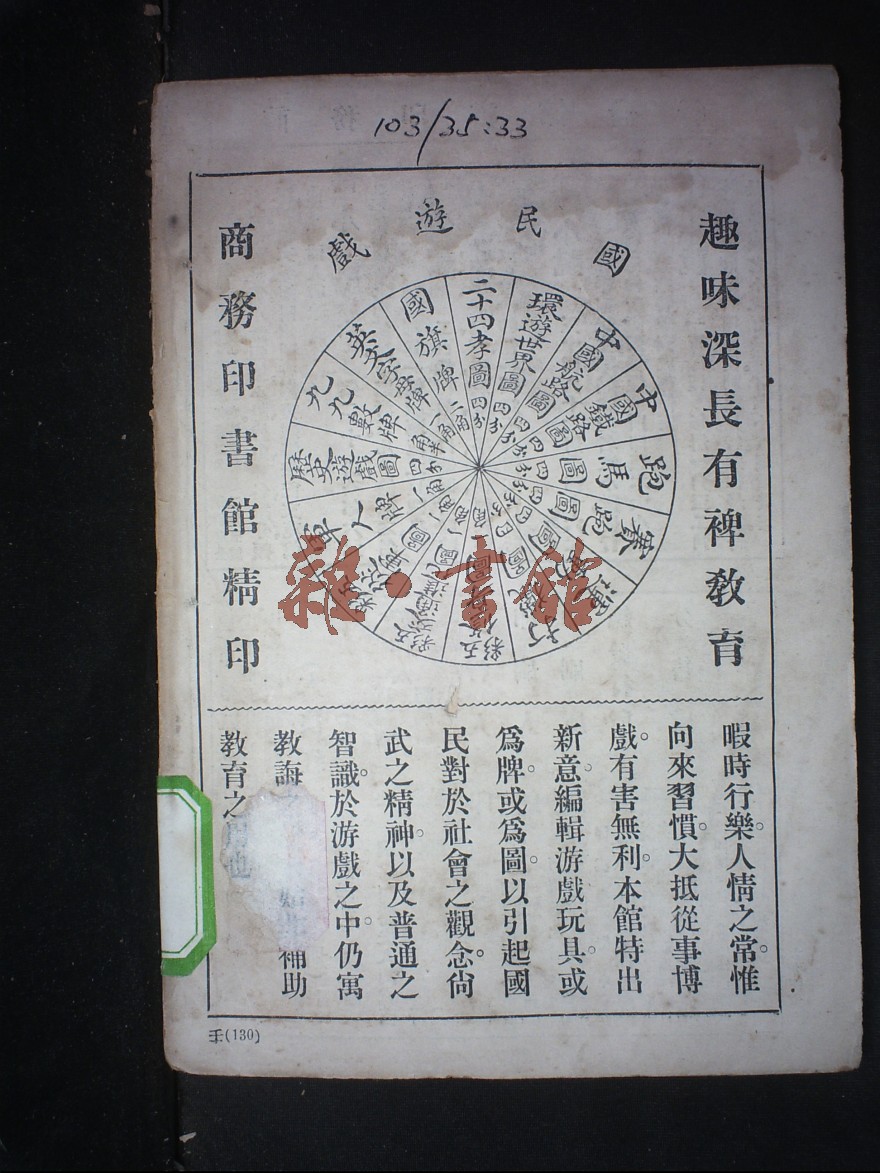 103/35:33
國民遊戲
趣味深長有裨教育
商務印書館精印
二十四孝圖 四分
環遊世界圖 四分
中國航路圖 四分
中國鐵路圖 四分
跑馬圖 四分
賽跑圖 四分
歷史遊戲圖 四分
九九數牌
英文字母牌
國旗牌 二角
暇時行樂。人情之常。惟
向來習慣。大抵從事博
戲。有害無利。本館特出
新意。編輯游戲玩具。或
爲牌。或爲圖。以引起國
民對於社會之觀念。尙
武之精神。以及普通之
智識。於游戲之中。仍寓
教誨 補助
教育之
(130)
雜·書館